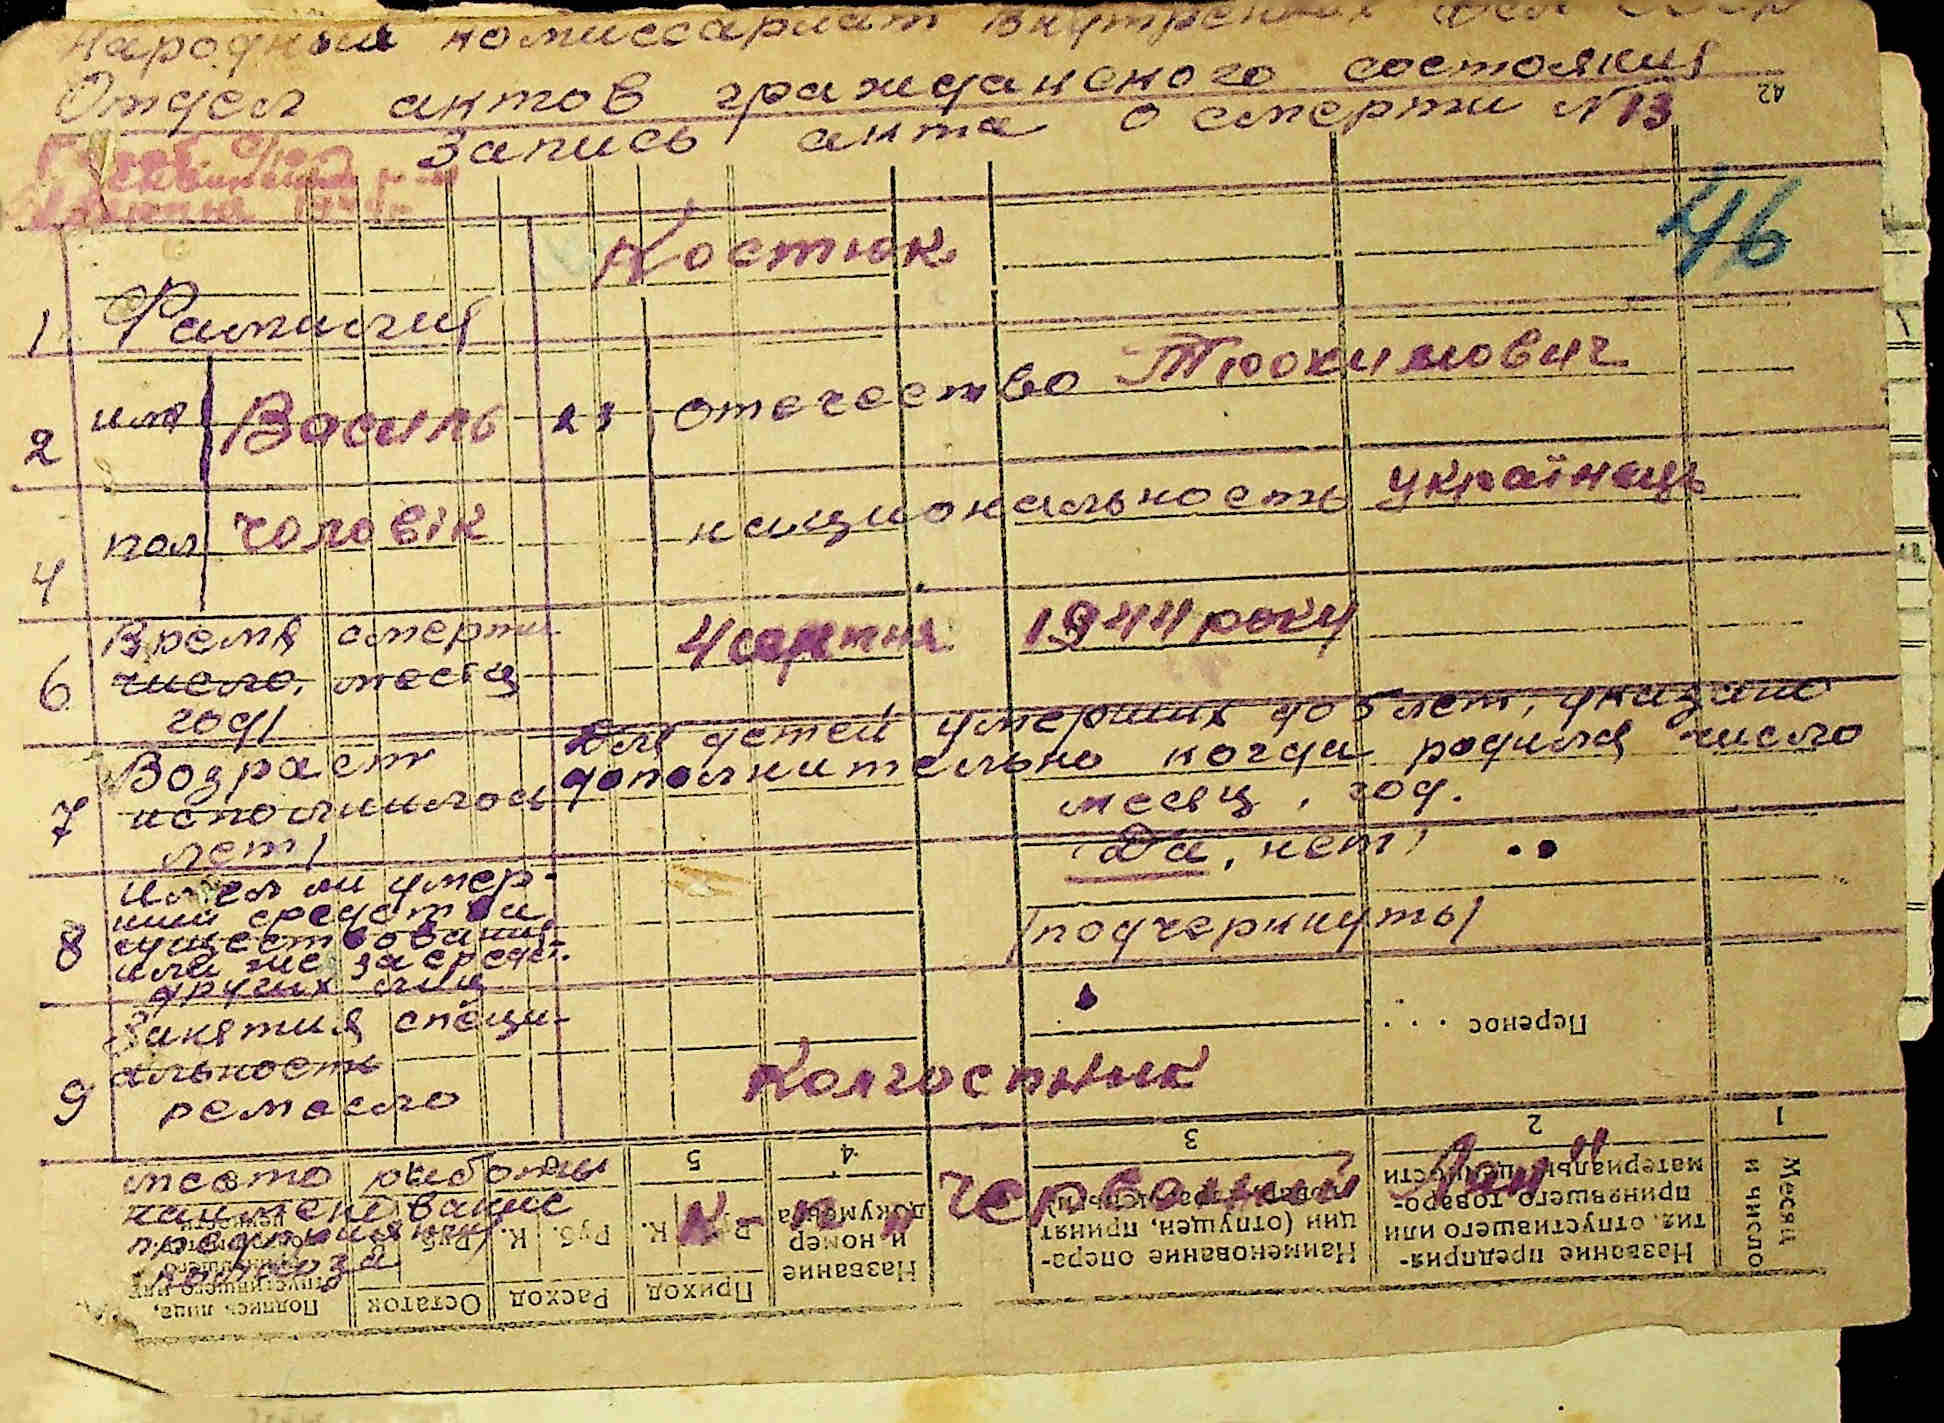 Народный комиссариат Внутренних дел СССР
Отдел актов гражданского состояния
42
Запись акта о смерти N 13
46
Костюк
1 Фамилия
2 имя Василь отчество Трохимович
4 пол чоловік национальность українець
6 Время смерти
число, месяц
год/
4 серпня 1944 року
7 Возраст
исполнилось
лет/
Для детей умерших до 5 лет, указать
дополнительно когда родился число
месяц, год.
8 имел ли умер-
ший средства
существования
или же за средст.
других лиц
Да, нет/
/подчеркнуть/
Перенос . . .
9 Занятия специ-
альность
ремесло
Колгоспник
место работы
наименование
предприятия,
колхоза
к-п „Червоний Лан"
1 2 3 4 5
Месяц и число
Название предприя-
тия, отпустившего или
принявшего товаро-
материальн. ценности
Наименование опера-
ции (отпущен, принят
Название
и номер
докум-та
Приход
Расход
Остаток
Руб. К.
Подпись лица,